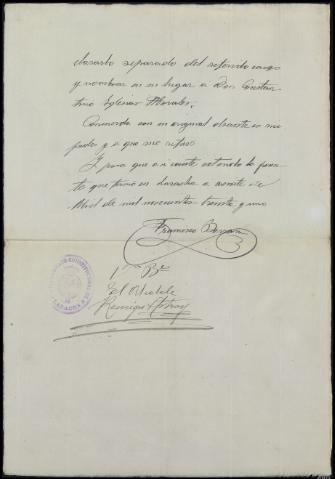 declararlo separado del referido cargo
y nombrar en su lugar a Don Constan-
tino Iglesias Morales,
Concuerda con su original obrante en mi
poder y a que me refiero
Y para que así conste extiendo la presen-
te que firmo en a veinte de
Abril de mil novecientos treinta y uno
Francisco
Vº Bº
El Alcalde
Remigio
CONSTITUCIONAL